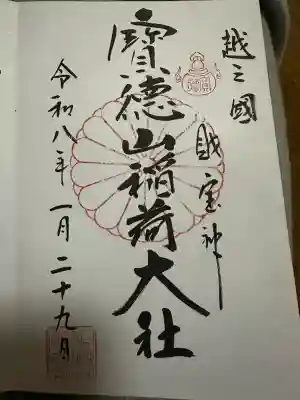 越之國
財宝神
寳徳山稲荷大社
令和八年一月二十九日